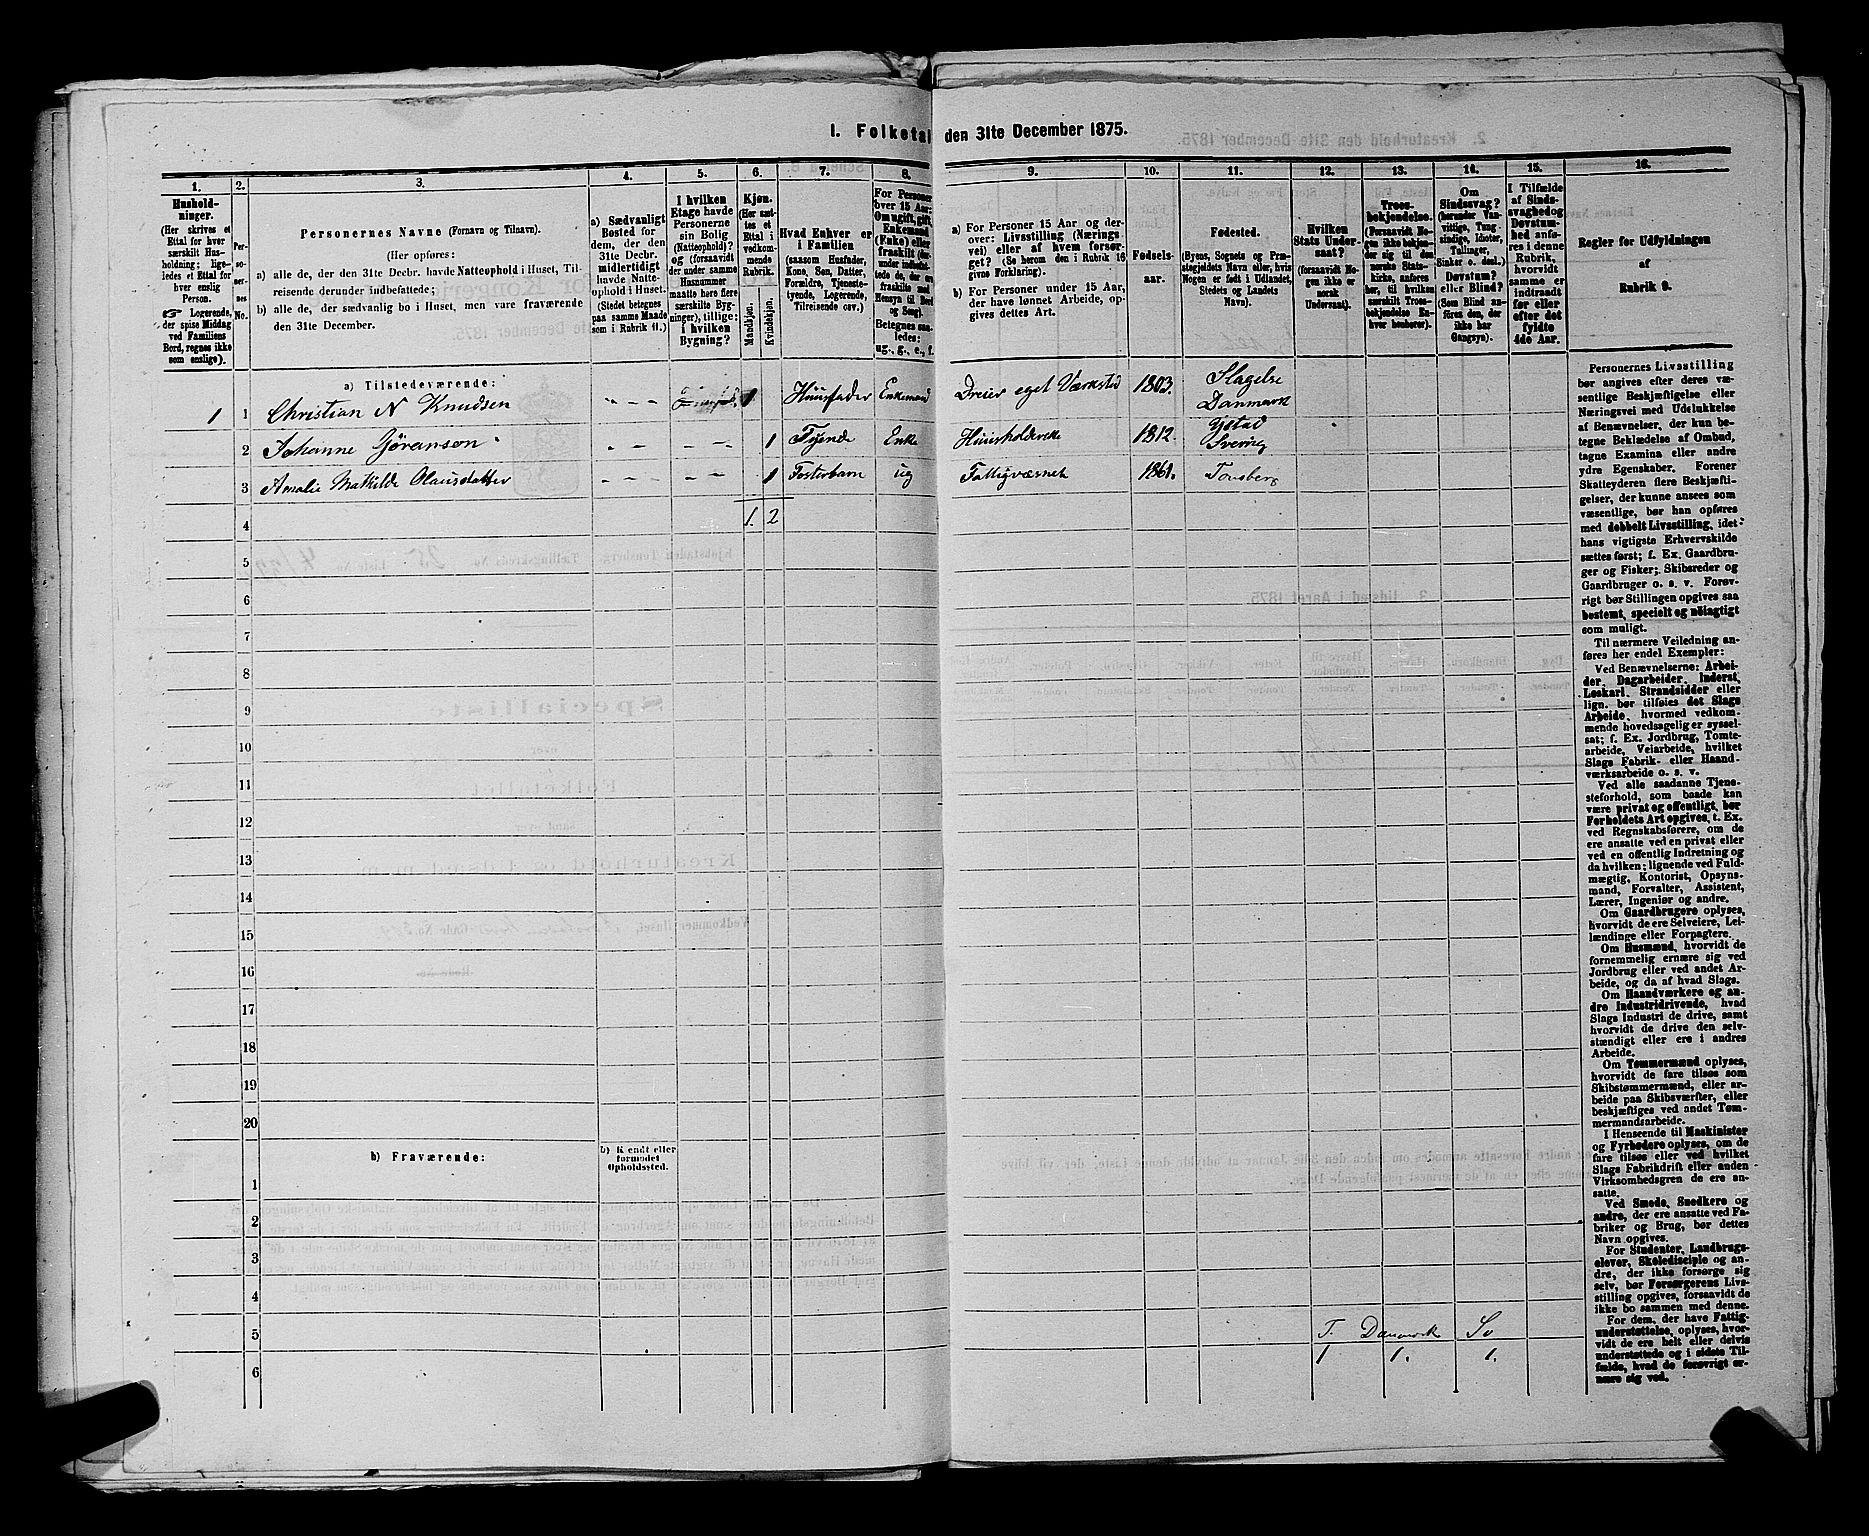 1. Folketal den 31te December 1875.
1.
Hushold-
ninger.
(Her skrives et
Ettal for hver
særskilt Hus-
holdning; lige-
ledes et Ettal for
hver enslig
Person.
Logerende,
der spise Middag
ved Familiens
Bord, regnes ikke
som enslige).
2.
Per-
so-
ner-
nes
No.
3.
Personernes Navne (Fornavn og Tilnavn).
(Her opføres:
a) alle de, der den 31te Decbr. havde Natteophold i Huset, Til-
reisende derunder indbefattede;
b) alle de, der sædvanlig bo i Huset, men vare fraværende
den 31te December.
4.
a) Sædvanligt
Bosted for
dem, der den
31te Decbr.
midlertidigt
havde Natte-
ophold i Huset.
(Stedet betegnes
paa samme Maade
som i Rubrik 11.)
5.
I hvilken
Etage havde
Personerne
sin Bolig
(Natteophold)?
og (forsaavidt
der under samme
Husnummer
maatte høre flere
særskilte Byg-
ninger), tillige:
i hvilken
Bygning?
6.
Kjøn.
(Her sæt-
tes et
Ettal i
vedkom-
mende
Rubrik.
Mandkjøn.
Kvindekjøn.
7.
Hvad Enhver er
i Familien
(saasom Husfader,
Kone, Søn, Datter,
Forældre, Tjeneste-
tyende, Logerende,
Tilreisende osv.)
8.
For Personer
over 15 Aar:
Om ugift, gift,
Enkemand
(Enke) eller
fraskilt
Betegnes saa-
ledes:
ug., g., e., f.
9.
a) For Personer 15 Aar og der-
over: Livsstilling (Nærings-
vei) eller af hvem forsør-
get? (Se herom den i Rubrik 16
givne Forklaring).
b) For Personer under 15 Aar,
der have lønnet Arbeide, op-
gives dettes Art.
10.
Fødsels-
aar.
11.
Fødested.
(Byens, Sognets og Præ-
stegjeldets Navn eller, hvis
Nogen er født i Udlandet,
Stedets og Landets
Navn).
12.
Hvilken
Stats Under-
saat?
(forsaavidt No-
gen ikke er
norsk
Undersaat).
13.
Troes-
bekjendelse.
(Forsaavidt No-
gen ikke bekjen-
der sig til den
norske Stats-
kirke, anføres
her, til hvilken
særskilt Troes-
bekjendelse En-
hver henhører).
14.
Om
Sindssvag?
(herunder Van-
vittige, Tung-
sindige, Idioter,
Tullinger,
Sinker o. desl.).
Døvstum?
eller Blind?
(Som Blind an-
føres den, der
ikke har
Gangsyn).
15.
I Tilfælde
af Sinds-
svaghed og
Døvstum-
hed anfø-
res i denne
Rubrik,
hvorvidt
samme er
indtraadt
før eller
efter det
fyldte
4de Aar.
16.
Regler for Udfyldningen
af
Rubrik 9.
a) Tilstedeværende:
1 1 Christian N Knudsen 1 Huusfader Enkemand Dreier eget Værksted 1803. Slagelse
Danmark
2 Johanne Jøransen 1 Tyende Enke Huusholderske 1812. Ystad
Sverrig
3 Amalie Mathilde Olausdatter 1 Fosterbarn ug Fattigvæsnet 1861. Tønsberg
4 1. 2
5
6
7
8
9
10
11
12
13
14
15
16
17
18
19
20
b) Fraværende:
b) Kjendt eller
formodet
Opholdssted.
1
2
3
4
5 T. Danmark Sv
1 1. 1.
6
Personernes Livsstilling
bør angives efter deres væ-
sentlige Beskjæftigelse eller
Næringsvei med Udelukkelse
af Benævnelser, der kun be-
tegne Beklædelse af Ombud,
tagne Examina eller andre
ydre Egenskaber. Forener
Skatteyderen flere Beskjæfti-
gelser, der kunne ansees som
væsentlige, bør han opføres
med dobbelt Livsstilling, idet
hans vigtigste Erhvervskilde
sættes først; f. Ex. Gaardbru-
ger og Fisker; Skibsreder og
Gaardbruger o. s. v. Forøv-
rigt bør Stillingen opgives saa
bestemt, specielt og nøiagtigt
som muligt.
Til nærmere Veiledning an-
føres her endel Exempler:
Ved Benævnelserne: Arbei-
der, Dagarbeider, Inderst,
Løskarl, Strandsidder eller
lign. bør tilføies det Slags
Arbeide, hvormed vedkom-
mende hovedsagelig er syssel-
sat; f. Ex. Jordbrug, Tomte-
arbeide, Veiarbeide, hvilket
Slags Fabrik- eller Haand-
værksarbeide o. s. v.
Ved alle saadanne Tjene-
steforhold, som baade kan
være privat og offentligt, bør
Forholdets Art opgives, t. Ex.
ved Regnskabsførere, om de
ere ansatte ved en privat eller
ved en offentlig Indretning og
da hvilken; lignende ved Fuld-
mægtig, Kontorist, Opsyns-
mand, Forvalter, Assistent,
Lærer, Ingeniør og andre.
Om Gaardbrugere oplyses,
hvorvidt de ere Selveiere, Lei-
lændinge eller Forpagtere.
Om Husmænd, hvorvidt de
fornemmelig ernære sig ved
Jordbrug eller ved andet Ar-
beide, og da af hvad Slags.
Om Haandværkere og an-
dre Industridrivende, hvad
Slags Industri de drive, samt
hvorvidt de drive den selv-
stændigt eller ere i andres
Arbeide.
Om Tømmermænd oplyses,
hvorvidt de fare tilsøs som
Skibstømmermænd, eller ar-
beide paa Skibsværfter, eller
beskjæftiges ved andet Tøm-
mermandsarbeide.
I Henseende til Maskinister
og Fyrbødere oplyses, om de
fare tilsøs eller ved hvilket
Slags Fabrikdrift eller anden
Virksomhedsgren de ere an-
satte.
Ved Smede, Snedkere og
andre, der ere ansatte ved Fa-
briker og Brug, bør dettes
Navn opgives.
For Studenter, Landbrugs-
elever, Skoledisciple og an-
dre, der ikke forsørge sig
selv, bør Forsørgerens Livs-
stilling opgives, forsaavidt de
ikke bo sammen med denne.
For dem, der have Fattig-
understøttelse, oplyses, hvor-
vidt de ere helt eller delvis
understøttede og i sidste Til-
fælde, hvad de forøvrigt er-
nære sig ved.